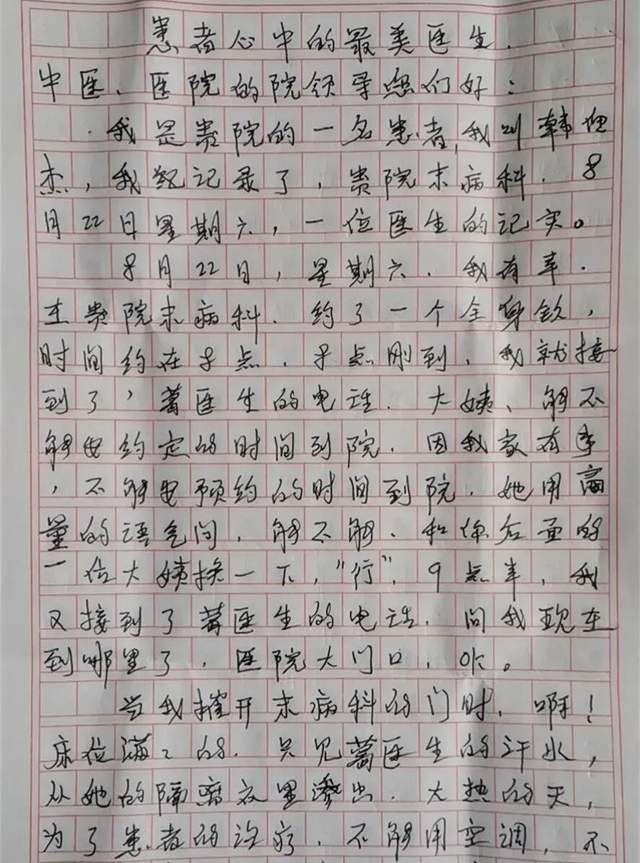 患者心中的最美医生.
中医、医院的院领导您们好:
我是贵院的一名患者,我叫韩
杰,我记录了,贵院末病科.8
月22日星期六,一位医生的记实。
8月22日,星期六.我有幸.
在贵院末病科.约了一个全身
时间约在8点.8点刚到,我就接
到了,葛医生的电话.大姨、能不
能按约定的时间到院.因我家有事
,不能按预约的时间到院.她用商
量的语气问,能不能.和你后面的
一位大姨换一下,"行".9点半,我
又接到了葛医生的电话.问我现在
到哪里了.医院大门口,
当我推开末病科的门时.啊!
床位满々的.只见葛医生的汗水,
从她的隔离衣里渗出.大热的天,
为了患者的治疗.不能用空调,不